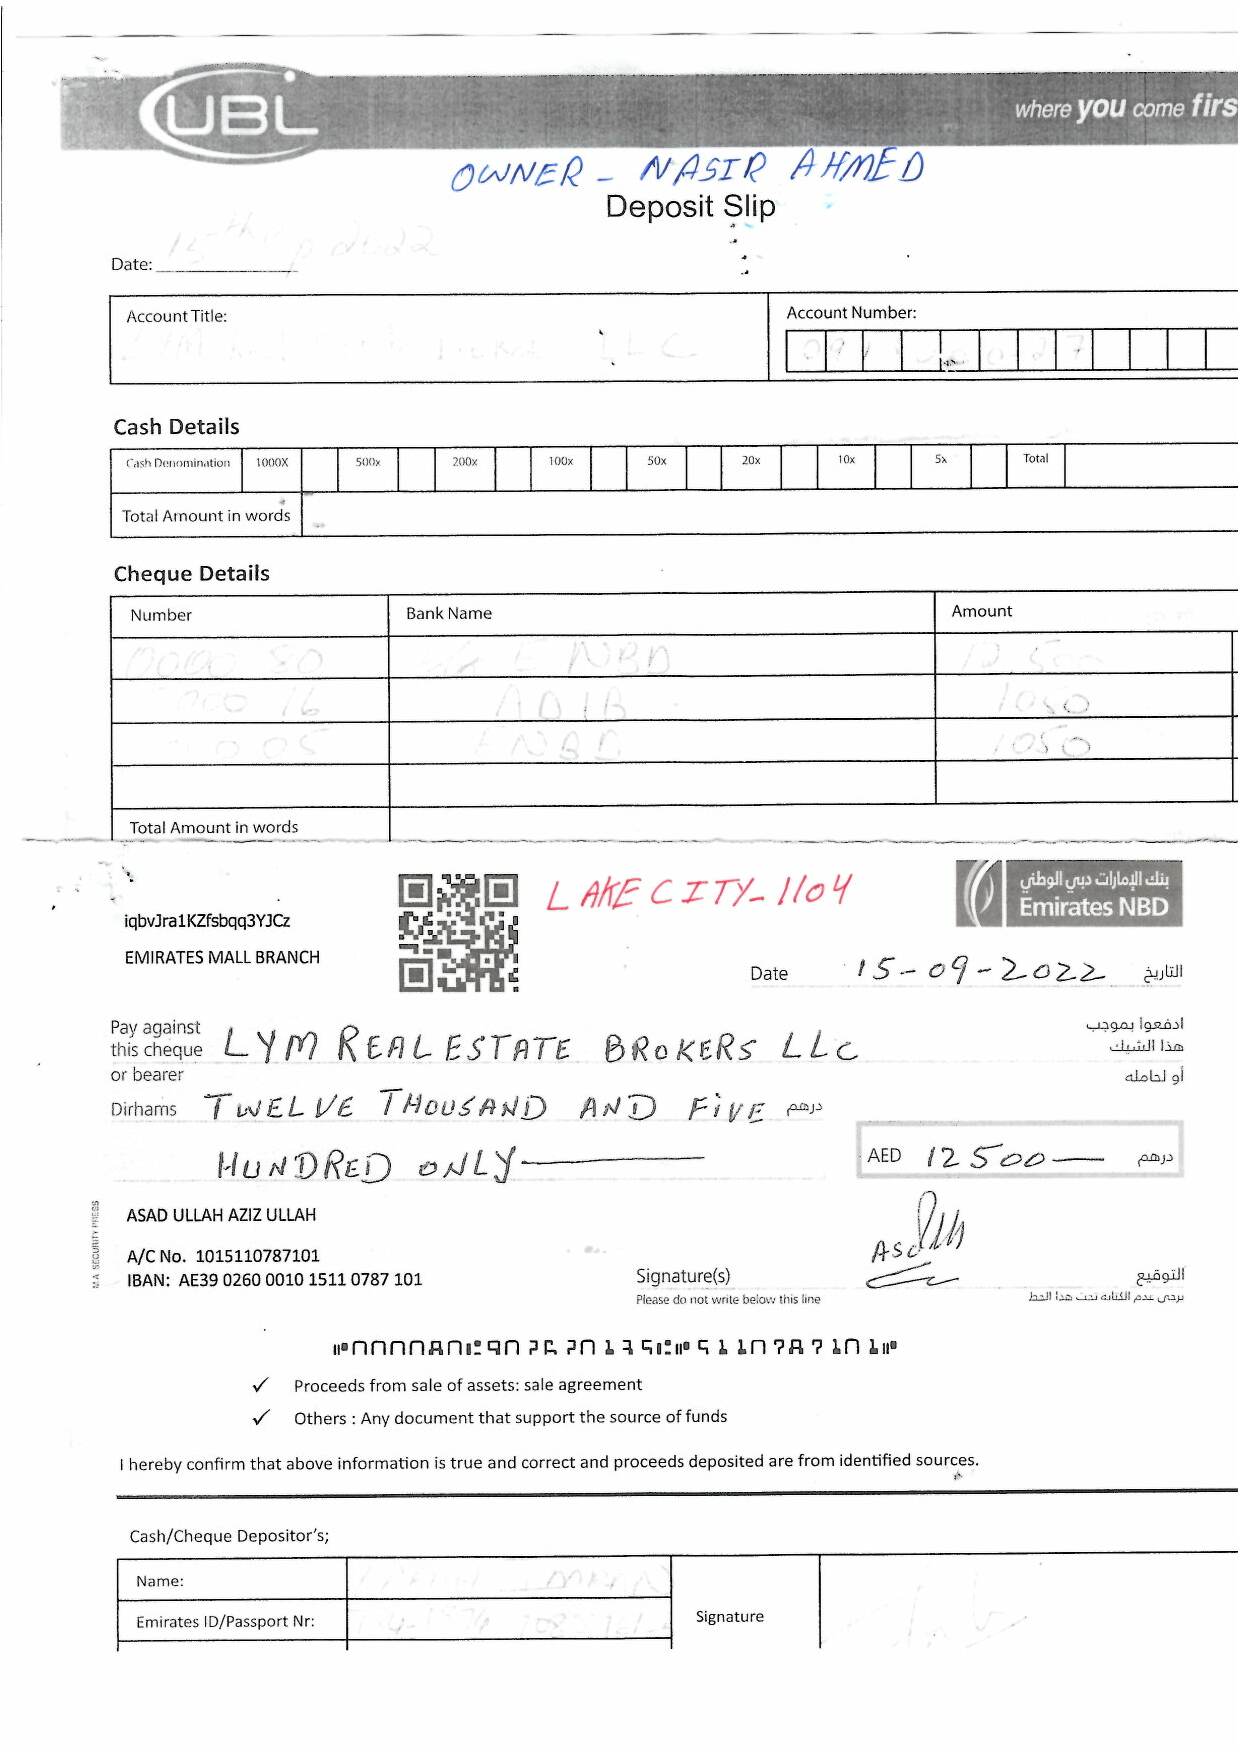 UBL
where you come firs
OWNER - NASIR AHMED
Deposit Slip
Date: 2022
Account Title: LLC
Account Number:
Cash Details
Cash Denomination 1000X 500x 200x 100x 50x 20x 10x 5x Total
Total Amount in words
Cheque Details
Number Bank Name Amount
ENBD 12,500
ADIB 1050
ENBD 1050
Total Amount in words
LAKE CITY-1104
بنك الإمارات دبي الوطني
Emirates NBD
iqbvJra1KZfsbqq3YJCz
EMIRATES MALL BRANCH
Date 15-09-2022 التاريخ
Pay against this cheque or bearer LYM REAL ESTATE BROKERS LLC ادفعوا بموجب هذا الشيك أو لحامله
Dirhams TWELVE THOUSAND AND FIVE درهم
HUNDRED ONLY
AED 12500 درهم
MA SECURITY PRESS
ASAD ULLAH AZIZ ULLAH
A/C No. 1015110787101
IBAN: AE39 0260 0010 1511 0787 101
Signature(s) التوقيع
Please do not write below this line يرجى عدم الكتابة تحت هذا الخط
✓ Proceeds from sale of assets: sale agreement
✓ Others : Any document that support the source of funds
I hereby confirm that above information is true and correct and proceeds deposited are from identified sources.
Cash/Cheque Depositor's;
Name:
Emirates ID/Passport Nr:
Signature